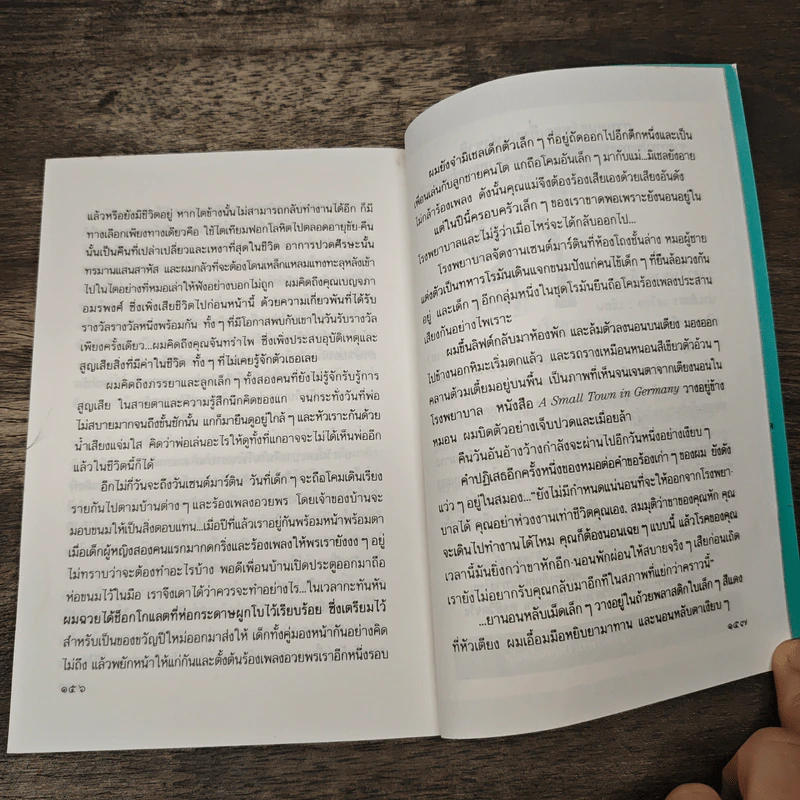 แล้วหรือยังมีชีวิตอยู่ หากไตข้างนั้นไม่สามารถกลับทำงานได้อีก ก็มี
ทางเลือกเพียงทางเดียวคือ ใช้ไตเทียมฟอกโลหิตไปตลอดอายุขัย-คืน
นั้นเป็นคืนที่เปล่าเปลี่ยวและเหงาที่สุดในชีวิต อาการปวดศีรษะนั้น
ทรมานแสนสาหัส และผมกลัวที่จะต้องโดนเหล็กแหลมแทงทะลุหลังเข้า
ไปในไตอย่างที่หมอเล่าให้ฟังอย่างบอกไม่ถูก ผมคิดถึงคุณเบญจภา
อมรพงศ์ ซึ่งเพิ่งเสียชีวิตไปก่อนหน้านี้ ด้วยความเกี่ยวพันที่ได้รับ
รางวัลรางวัลหนึ่งพร้อมกัน ทั้ง ๆ ที่มีโอกาสพบกับเขาในวันรับรางวัล
เพียงครั้งเดียว...ผมคิดถึงคุณจันทรำไพ ซึ่งเพิ่งประสบอุบัติเหตุและ
สูญเสียสิ่งที่มีค่าในชีวิต ทั้ง ๆ ที่ไม่เคยรู้จักตัวเธอเลย
ผมคิดถึงภรรยาและลูกเล็ก ๆ ทั้งสองคนที่ยังไม่รู้จักรับรู้การ
สูญเสีย ในสายตาและความรู้สึกนึกคิดของแก จนกระทั่งวันที่พ่อ
ไม่สบายมากจนถึงขั้นชักนั้น แกก็มายืนดูอยู่ใกล้ ๆ และหัวเราะกันด้วย
น้ำเสียงแจ่มใส คิดว่าพ่อเล่นอะไรให้ดูทั้งที่แกอาจจะไม่ได้เห็นพ่ออีก
แล้วในชีวิตนี้ก็ได้
อีกไม่กี่วันจะถึงวันเซนต์มาร์ติน วันที่เด็ก ๆ จะถือโคมเดินเรียง
รายกันไปตามบ้านต่าง ๆ และร้องเพลงอวยพร โดยเจ้าของบ้านจะ
มอบขนมให้เป็นสิ่งตอบแทน...เมื่อปีที่แล้วเราอยู่กันพร้อมหน้าพร้อมตา
เมื่อเด็กผู้หญิงสองคนแรกมากดกริ่งและร้องเพลงให้พรเรายังงง ๆ อยู่
ไม่ทราบว่าจะต้องทำอะไรบ้าง พอดีเพื่อนบ้านเปิดประตูออกมาถือ
ห่อขนมไว้ในมือ เราจึงเดาได้ว่าควรจะทำอย่างไร...ในเวลากะทันหัน
ผมฉวยได้ช็อกโกแลตที่ห่อกระดาษผูกโบไว้เรียบร้อย ซึ่งเตรียมไว้
สำหรับเป็นของขวัญปีใหม่ออกมาส่งให้ เด็กทั้งคู่มองหน้ากันอย่างคิด
ไม่ถึง แล้วพยักหน้าให้แก่กันและตั้งต้นร้องเพลงอวยพรเราอีกหนึ่งรอบ
๑๕๖
ผมยังจำมิเชลเด็กตัวเล็ก ๆ ที่อยู่ถัดออกไปอีกตึกหนึ่งและเป็น
เพื่อนเล่นกับลูกชายคนโต แกถือโคมอันเล็ก ๆ มากับแม่...มิเชลยังอาย
ไม่กล้าร้องเพลง ดังนั้นคุณแม่จึงต้องร้องเสียเองด้วยเสียงอันดัง
แต่ในปีนี้ครอบครัวเล็ก ๆ ของเราขาดพอเพราะยังนอนอยู่ใน
โรงพยาบาลและไม่รู้ว่าเมื่อไหร่จะได้กลับออกไป...
โรงพยาบาลจัดงานเซนต์มาร์ตินที่ห้องโถงชั้นล่าง หมอผู้ชาย
แต่งตัวเป็นทหารโรมันเดินแจกขนมปังแก่คนไข้เด็ก ๆ ที่ยืนล้อมวงกัน
อยู่ และเด็ก ๆ อีกกลุ่มหนึ่งในชุดโรมันยืนถือโคมร้องเพลงประสาน
เสียงกันอย่างไพเราะ
ผมขึ้นลิฟต์กลับมาห้องพัก และล้มตัวลงนอนบนเตียง มองออก
ไปข้างนอกหิมะเริ่มตกแล้ว และรถรางเหมือนหนอนสีเขียวตัวอ้วน ๆ
คลานต้วมเตี้ยมอยู่บนพื้น เป็นภาพที่เห็นจนเจนตาจากเตียงนอนใน
โรงพยาบาล หนังสือ A Small Town in Germany วางอยู่ข้าง
หมอน ผมบิดตัวอย่างเจ็บปวดและเมื่อยล้า
คืนวันอันอ้างว้างกำลังจะผ่านไปอีกวันหนึ่งอย่างเงียบ ๆ
คำปฏิเสธอีกครั้งหนึ่งของหมอต่อคำขอร้องเก่า ๆ ของผม ยังดัง
แว่ว ๆ อยู่ในสมอง..."ยังไม่มีกำหนดแน่นอนที่จะให้ออกจากโรงพยา-
บาลได้ คุณอย่าห่วงงานเท่าชีวิตคุณเอง, สมมุติว่าขาของคุณหัก คุณ
จะเดินไปทำงานได้ไหม คุณก็ต้องนอนเฉย ๆ แบบนี้ แล้วโรคของคุณ
เวลานี้มันยิ่งกว่าขาหักอีก-นอนพักผ่อนให้สบายจริง ๆ เสียก่อนเถิด
เรายังไม่อยากรับคุณกลับมาอีกทีในสภาพที่แย่กว่าคราวนี้"
...ยานอนหลับเม็ดเล็ก ๆ วางอยู่ในถ้วยพลาสติกใบเล็ก ๆ สีแดง
ที่หัวเตียง ผมเอื้อมมือหยิบยามาทาน และนอนหลับตาเงียบ ๆ
๑๕๗